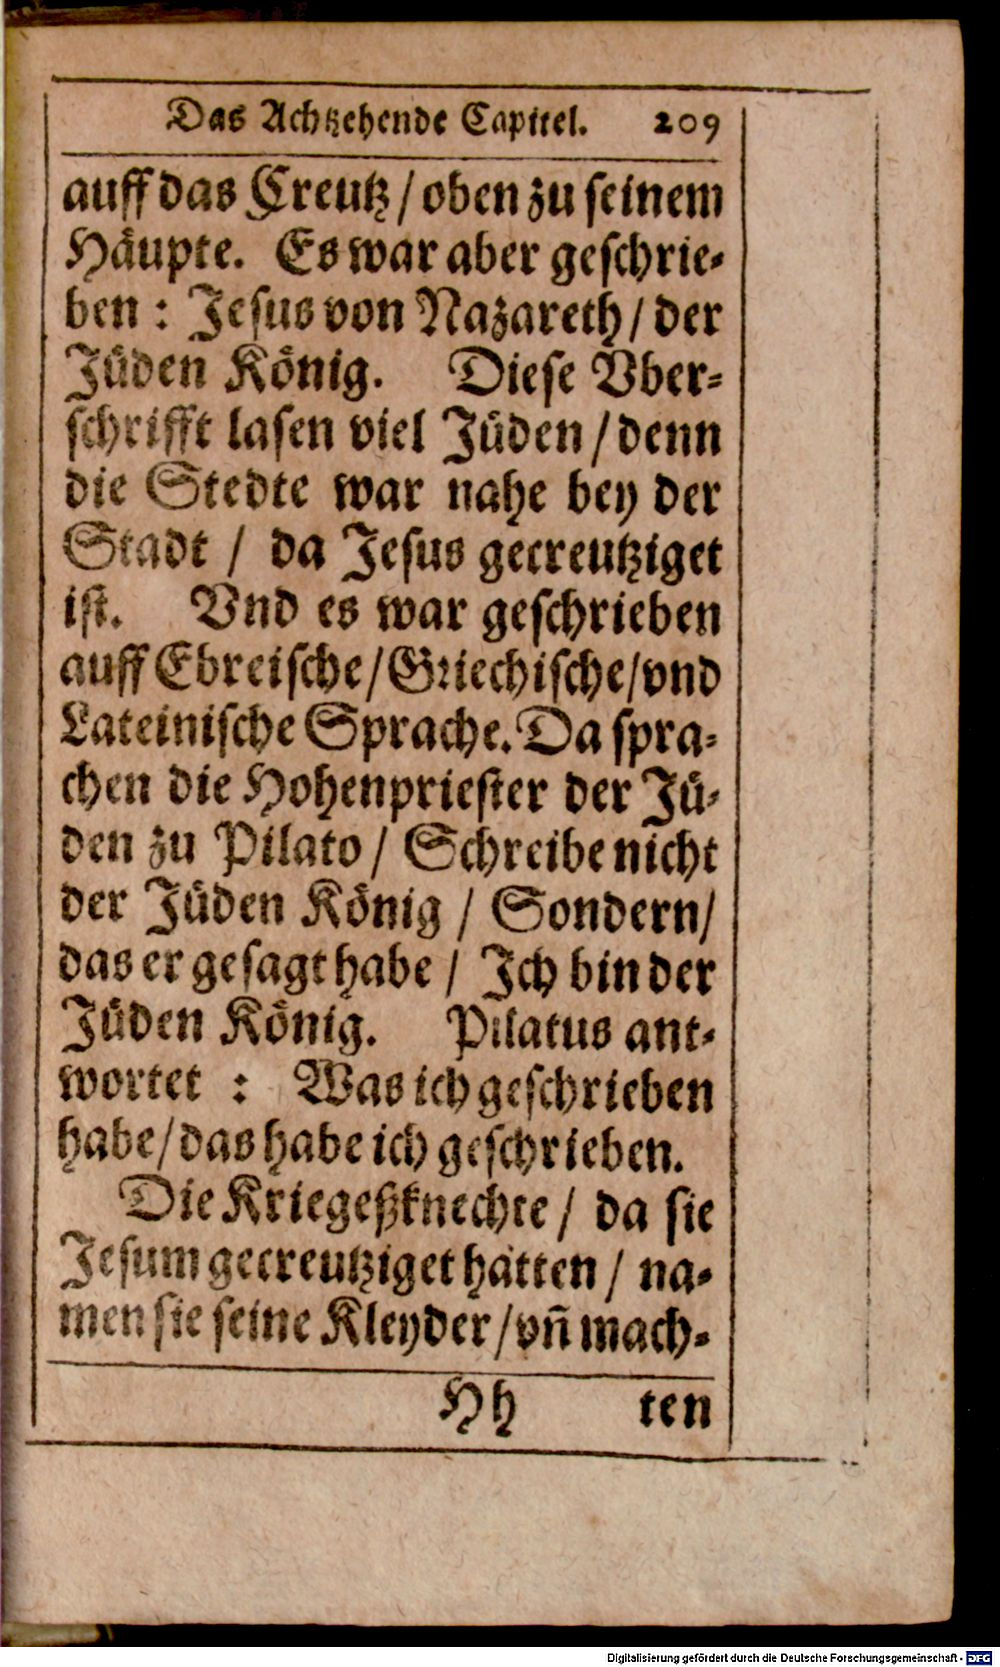 Das Achtzehende Capittel. 209
auff das Creutz / oben zu seinem
Häupte. Es war aber geschrie-
ben : Jesus von Nazareth / der
Jüden König. Diese Vber-
schrifft lasen viel Jüden / denn
die Stedte war nahe bey der
Stadt / da Jesus gecreutziget
ist. Vnd es war geschrieben
auff Ebreische / Griechische / vnd
Lateinische Sprache. Da spra-
chen die Hohenpriester der Jü-
den zu Pilato / Schreibe nicht
der Jüden König / Sondern /
das er gesagt habe / Ich bin der
Jüden König. Pilatus ant-
wortet : Was ich geschrieben
habe / das habe ich geschrieben.
Die Kriegeßknechte / da sie
Jesum gecreutziget hatten / na-
men sie seine Kleyder / vn̄ mach-
Hh ten
Digitalisierung gefördert durch die Deutsche Forschungsgemeinschaft - DFG